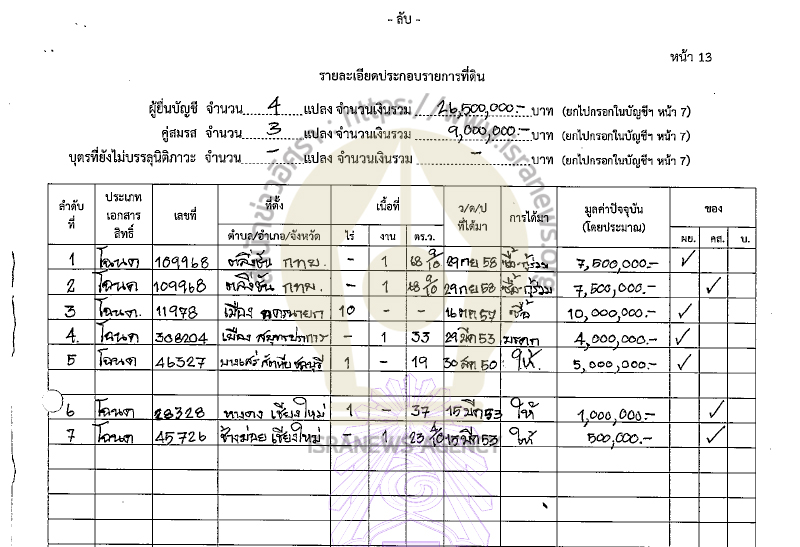 - ลับ -
หน้า 13
รายละเอียดประกอบรายการที่ดิน
ผู้ยื่นบัญชี จำนวน 4 แปลง จำนวนเงินรวม 26,500,000.- บาท (ยกไปกรอกในบัญชีฯ หน้า 7)
คู่สมรส จำนวน 3 แปลง จำนวนเงินรวม 9,000,000.- บาท (ยกไปกรอกในบัญชีฯ หน้า 7)
บุตรที่ยังไม่บรรลุนิติภาวะ จำนวน - แปลง จำนวนเงินรวม - บาท (ยกไปกรอกในบัญชีฯ หน้า 7)
ลำดับที่ ประเภทเอกสารสิทธิ์ เลขที่ ที่ตั้ง เนื้อที่ ว/ด/ป ที่ได้มา การได้มา มูลค่าปัจจุบัน (โดยประมาณ) ของ
ตำบล/อำเภอ/จังหวัด ไร่ งาน ตร.ว. ผย. คส. บ.
1 โฉนด 109968 ตลิ่งชัน กทม. - 1 29 กย 58 ซื้อ กู้ร่วม 7,500,000.- ✓
2 โฉนด 109968 ตลิ่งชัน กทม. - 1 29 กย 58 ซื้อ กู้ร่วม 7,500,000 ✓
3 โฉนด. 11978 เมือง นครนายก 10 - - ซื้อ 10,000,000.- ✓
4. โฉนด 308204 เมือง สมุทรปราการ - 1 33 29 มีค 53 มรดก 4,000,000.- ✓
5 โฉนด 46327 บางเสร่ สัตหีบ ชลบุรี 1 - 19 30 สค 50 ให้. 5,000,000.- ✓
6 โฉนด 28328 หางดง เชียงใหม่ 1 - 37 15 มีค 53 ให้ 1,000,000.- ✓
7 โฉนด 45726 ช้างม่อย เชียงใหม่ 1 15 มีค 53 ให้ 500,000.- ✓
สำนักข่าวอิศรา : https://www.isranews.org
ISRANEWS AGENCY